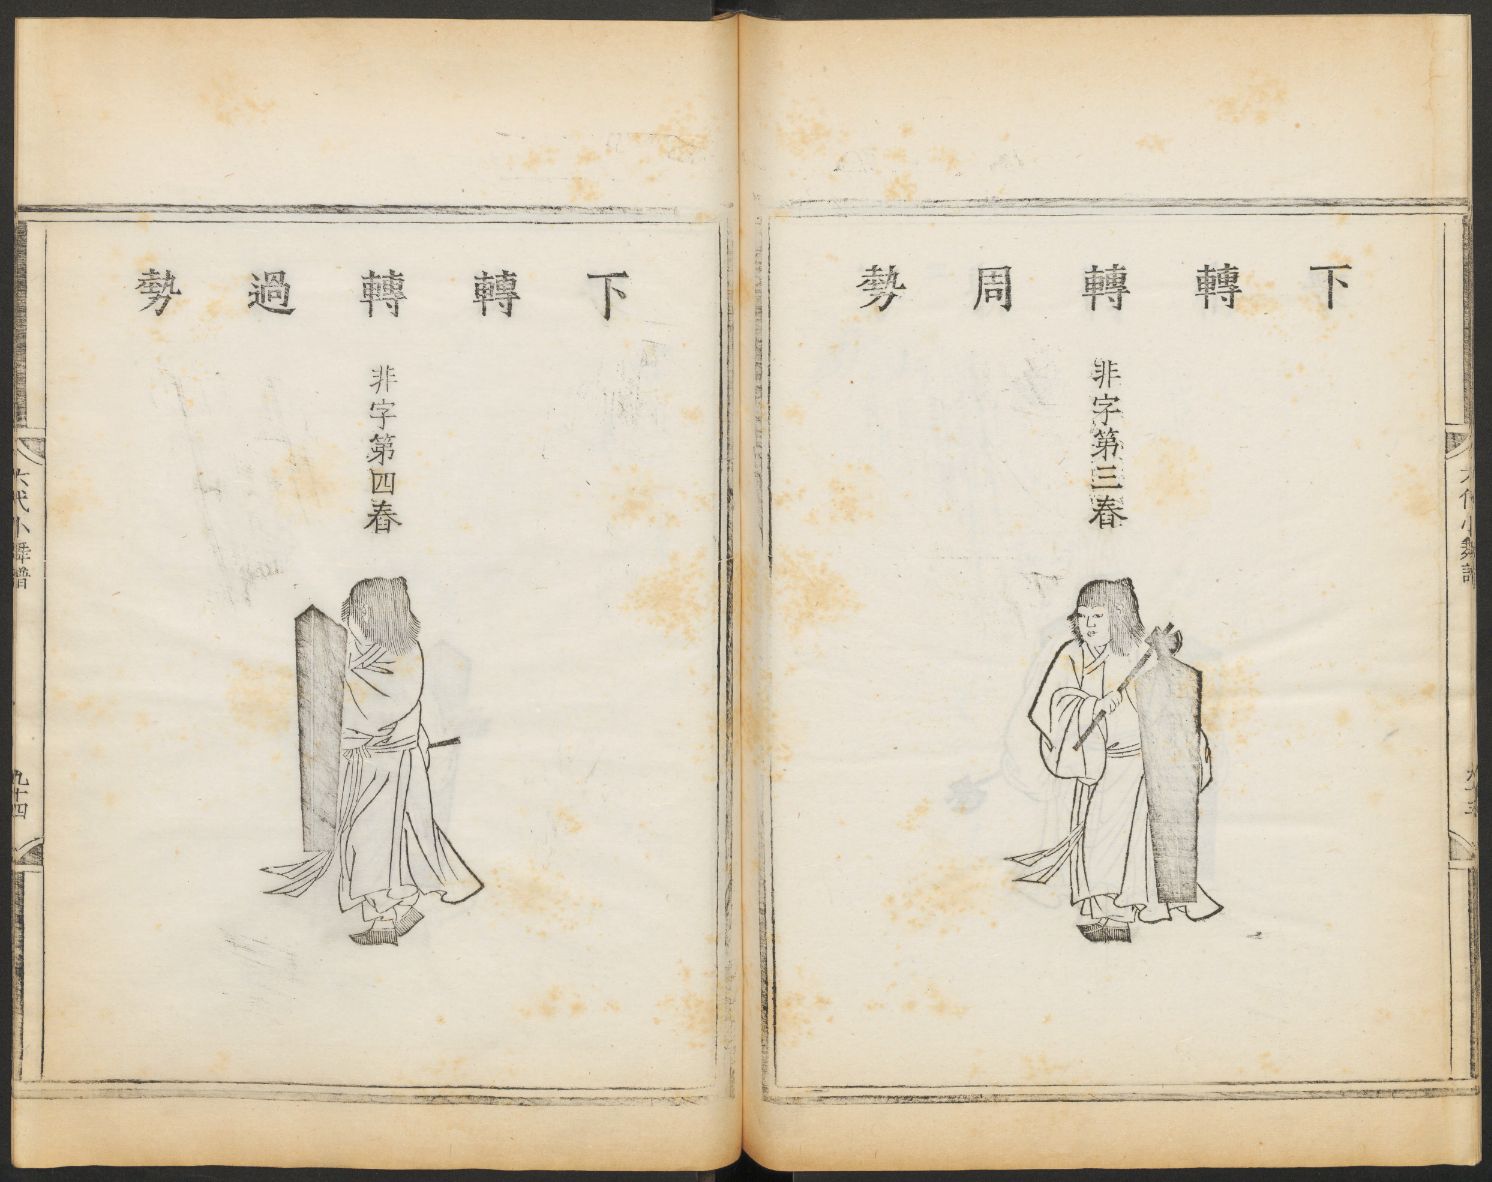 下轉轉周勢
非字第三舂
下轉轉過勢
非字第四舂
六代小舞譜
九十四